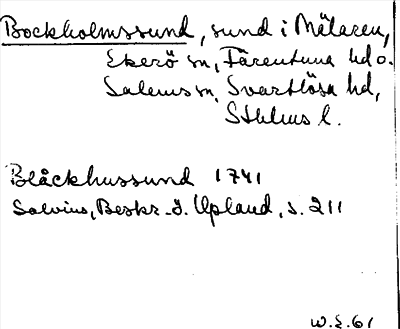 Bockholmssund, sund i Mälaren,
Ekerö sn, Färentuna hd o.
Salems sn, Svartlösa hd,
Sthlms l.
Blåckhussund 1741
Salvius, Beskr. ö. Upland, s. 211
W.E. 61